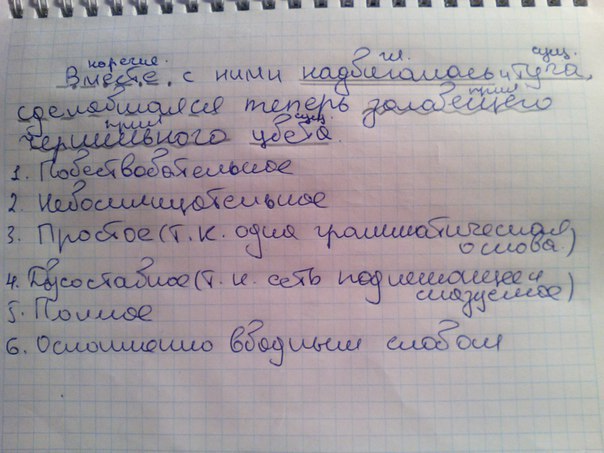 наречие. гл. сущ.
Вместе с ними надвигалась и туча,
прил
сделавшаяся теперь зловещего
прил сущ.
чернильного цвета.
1. Повествовательное
2. Невосклицательное
3. Простое (т.к. одна грамматическая
основа.)
4. Двусоставное (т.к. есть подлежащее и
сказуемое)
5. Полное
6. Осложнено вводным словом